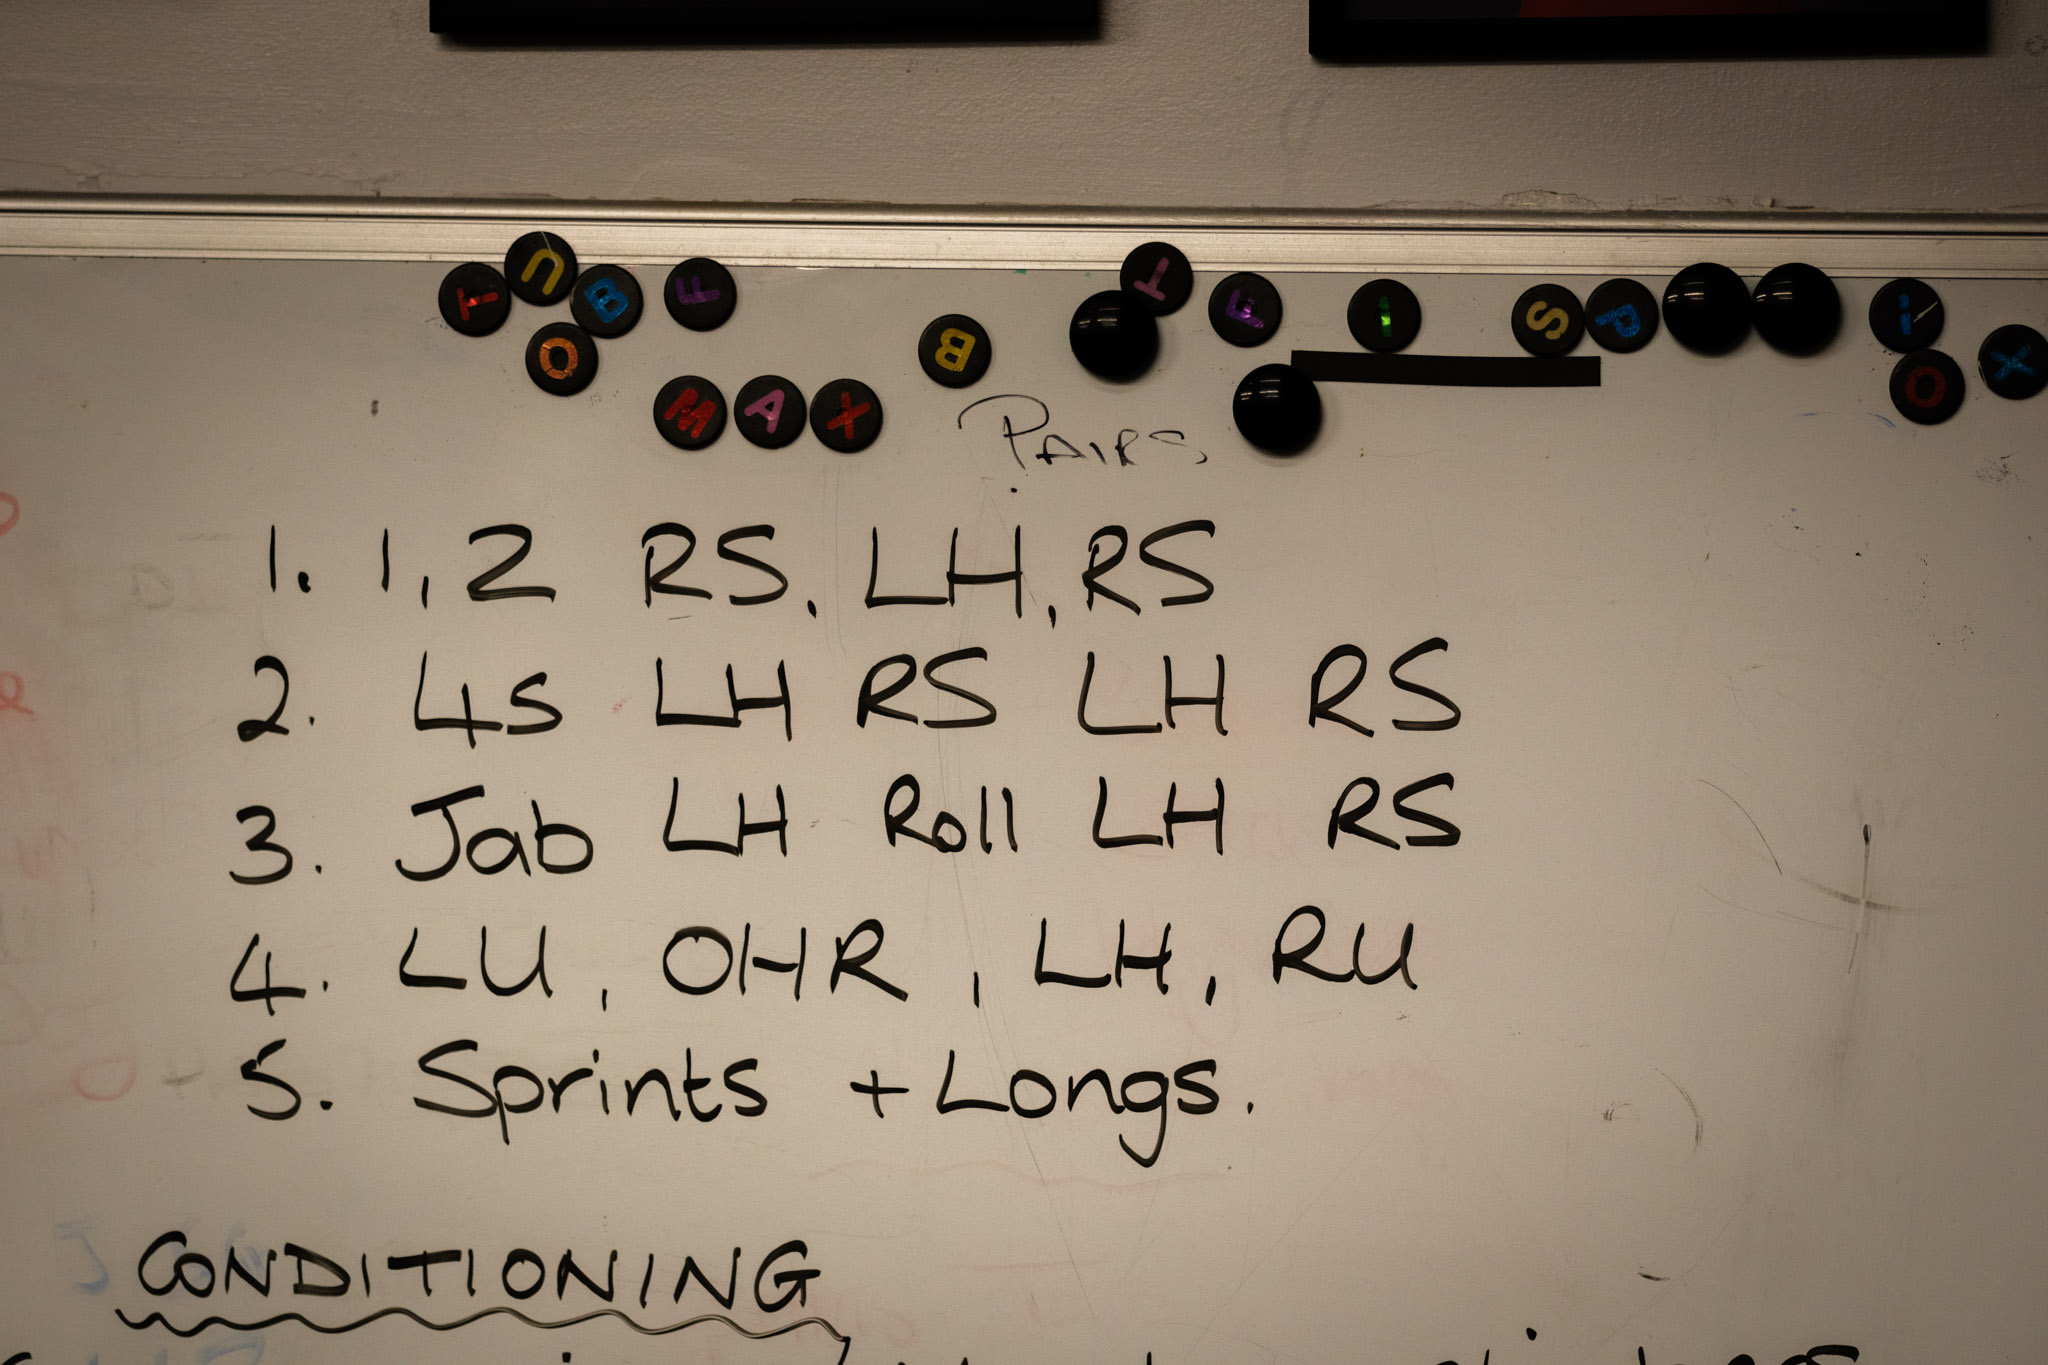 T U B F
O
B
T F I S P I
O X
MAX
PAIRS
1. 1,2 RS, LH, RS
2. 4s LH RS LH RS
3. Jab LH Roll LH RS
4. LU, OHR, LH, RU
5. Sprints + Longs.
CONDITIONING